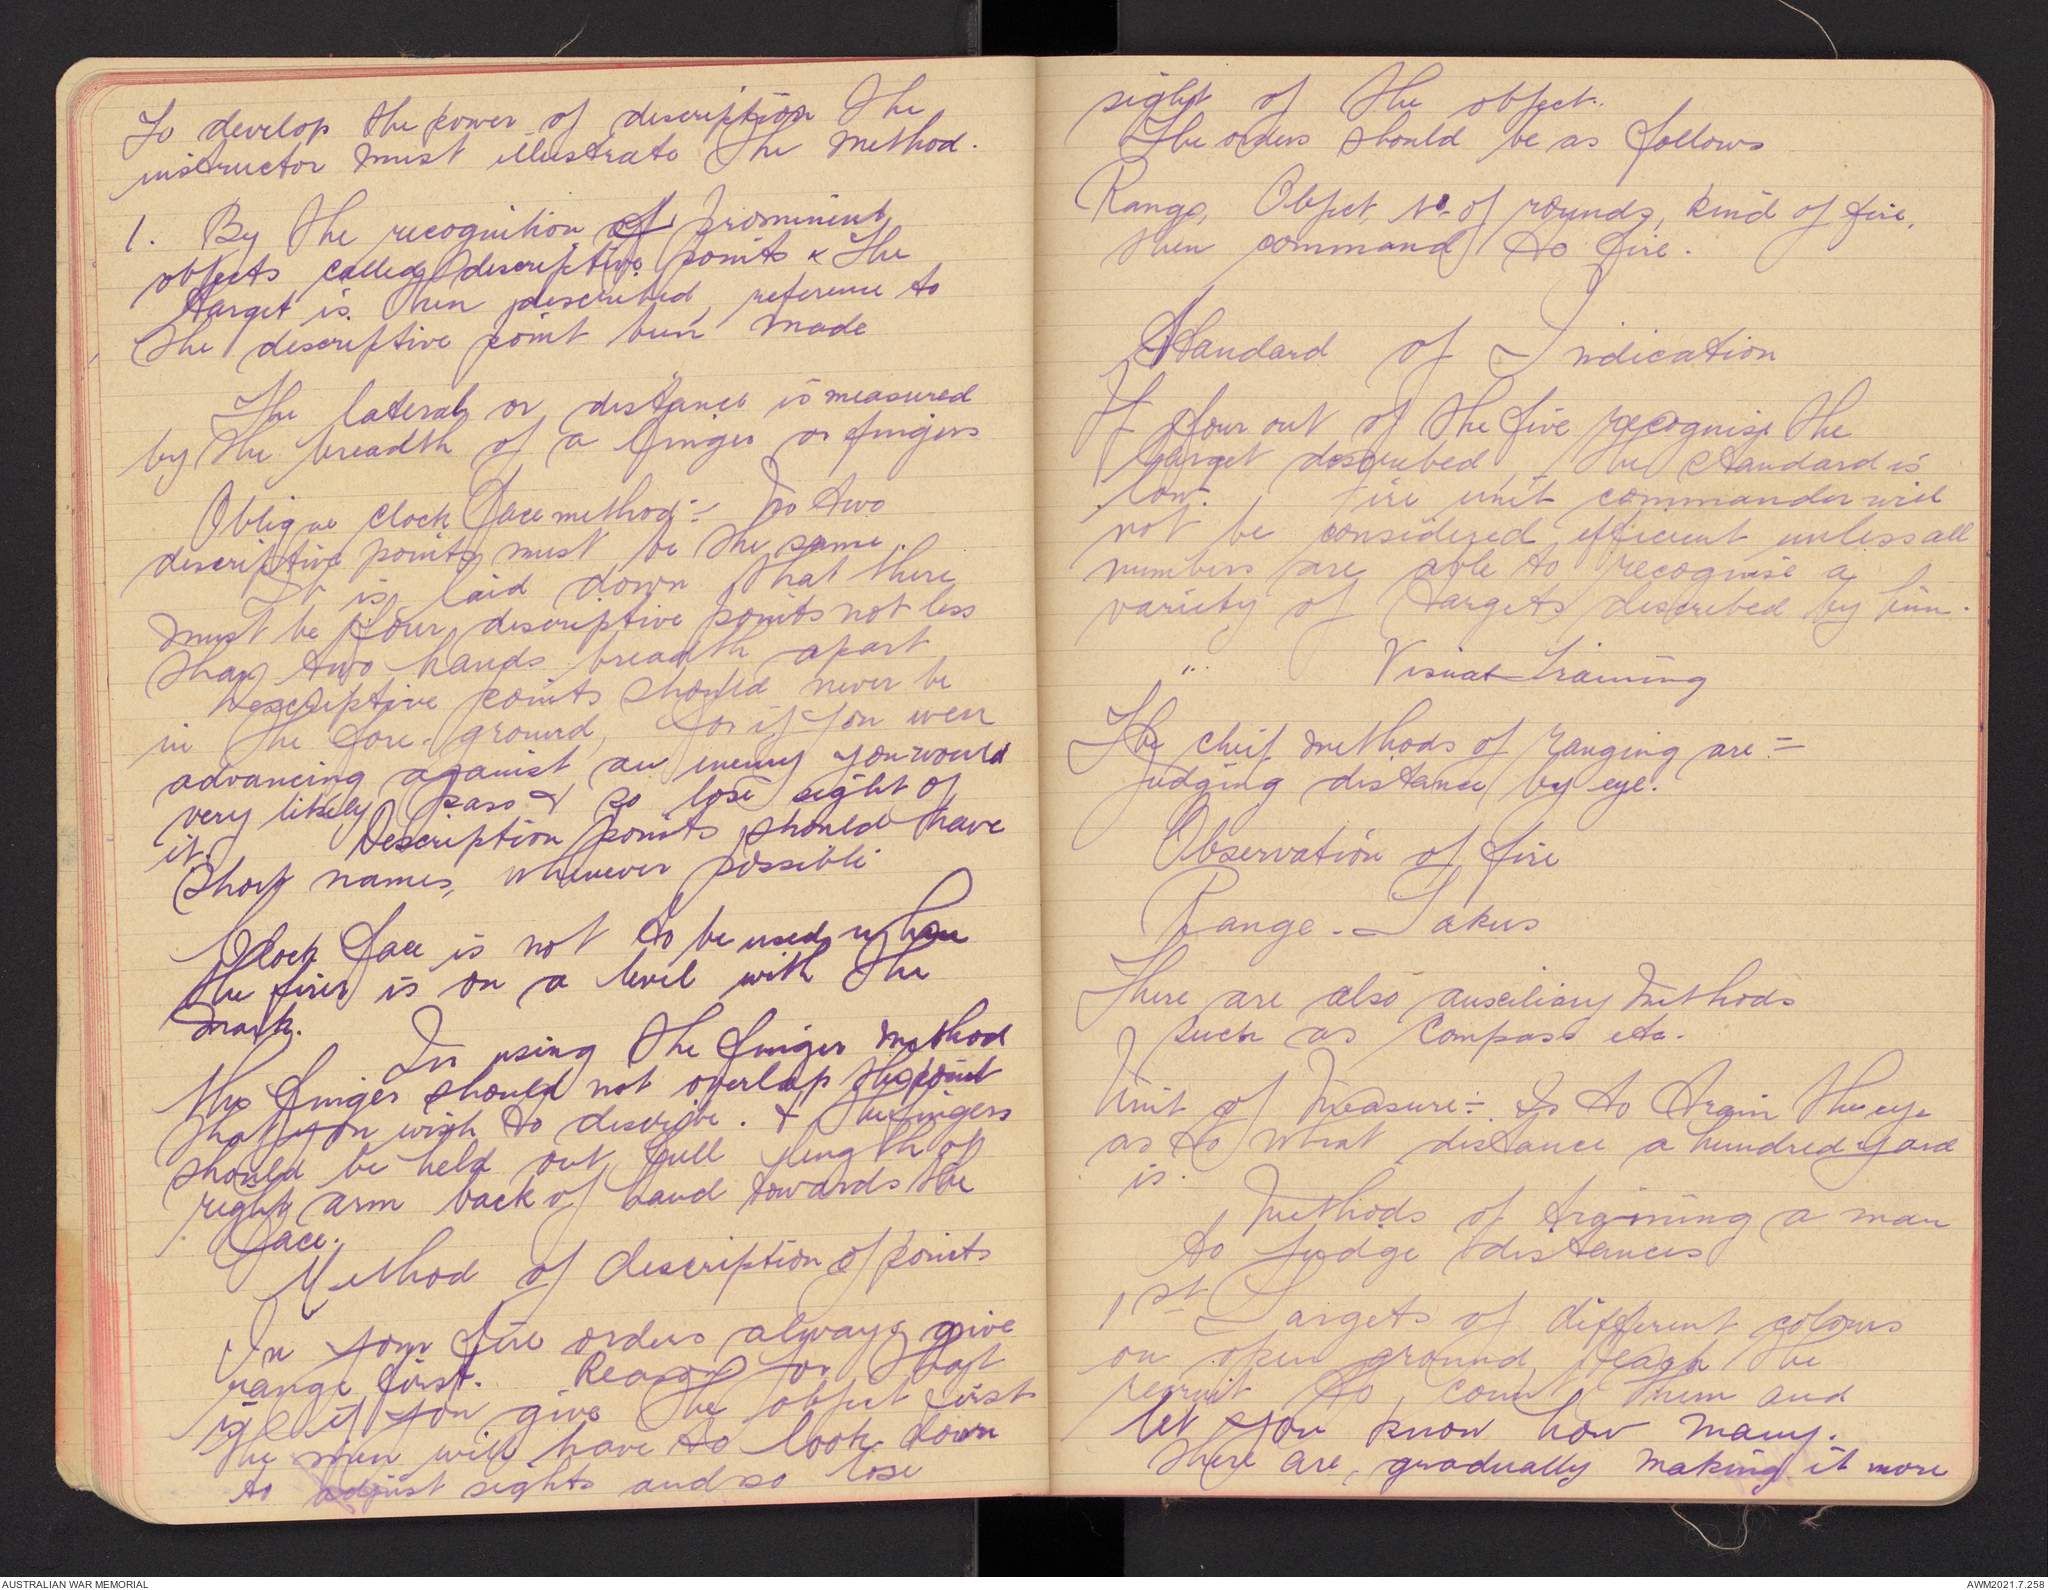 To develop the power of description the
instructor must illustrate the method.
1. By the recognition of prominent
objects called descriptive points & the
target is then described, reference to
the descriptive point bein made
The lateral or distance is measured
by the breadth of a finger or fingers
Oblique clock face method:- No two
descriptive points must be the same.
It is laid down that there
must be four descriptive points not less
than two hands breadth apart
Descriptive points should never be
in the fore-ground, for if you were
advancing against an enemy you would
very likely pass & so lose sight of
it. Description points should have
short names, whenever possible
Clock face is not to be used when
the firer is on a level with the
mark.
In using the finger method
the finger should not overlap the point
that you wish to describe. & the fingers
should be held out full length of
right arm back of hand towards the
face.
Method of description of points
In your fire orders always give
range first. Reason for that
is if you give the object first
the men will have to look down
to adjust sights and so lose
sight of the object.
The orders should be as follows
Range, Object, No of rounds, kind of fire,
then command to fire.
Standard of Indication
If four out of the five recognise the
target described, the standard is
low. Fire unit commander will
not be considered efficient unless all
numbers are able to recognise a
variety of targets described by him.
" Visual Training
The cheif methods of ranging are:-
Judging distance by eye.
Observation of fire
Range-Takers
There are also auxiliary methods
such as compass etc.
Unit of Measure:- Is to train the eye
as to what distance a hundred yard
is.
Methods of training a man
to judge distances
1st Targets of different colours
on open ground, teach the
recruit to count them and
let you know how many.
there are, gradually making it more
AUSTRALIAN WAR MEMORIAL
AWM2021.7.258